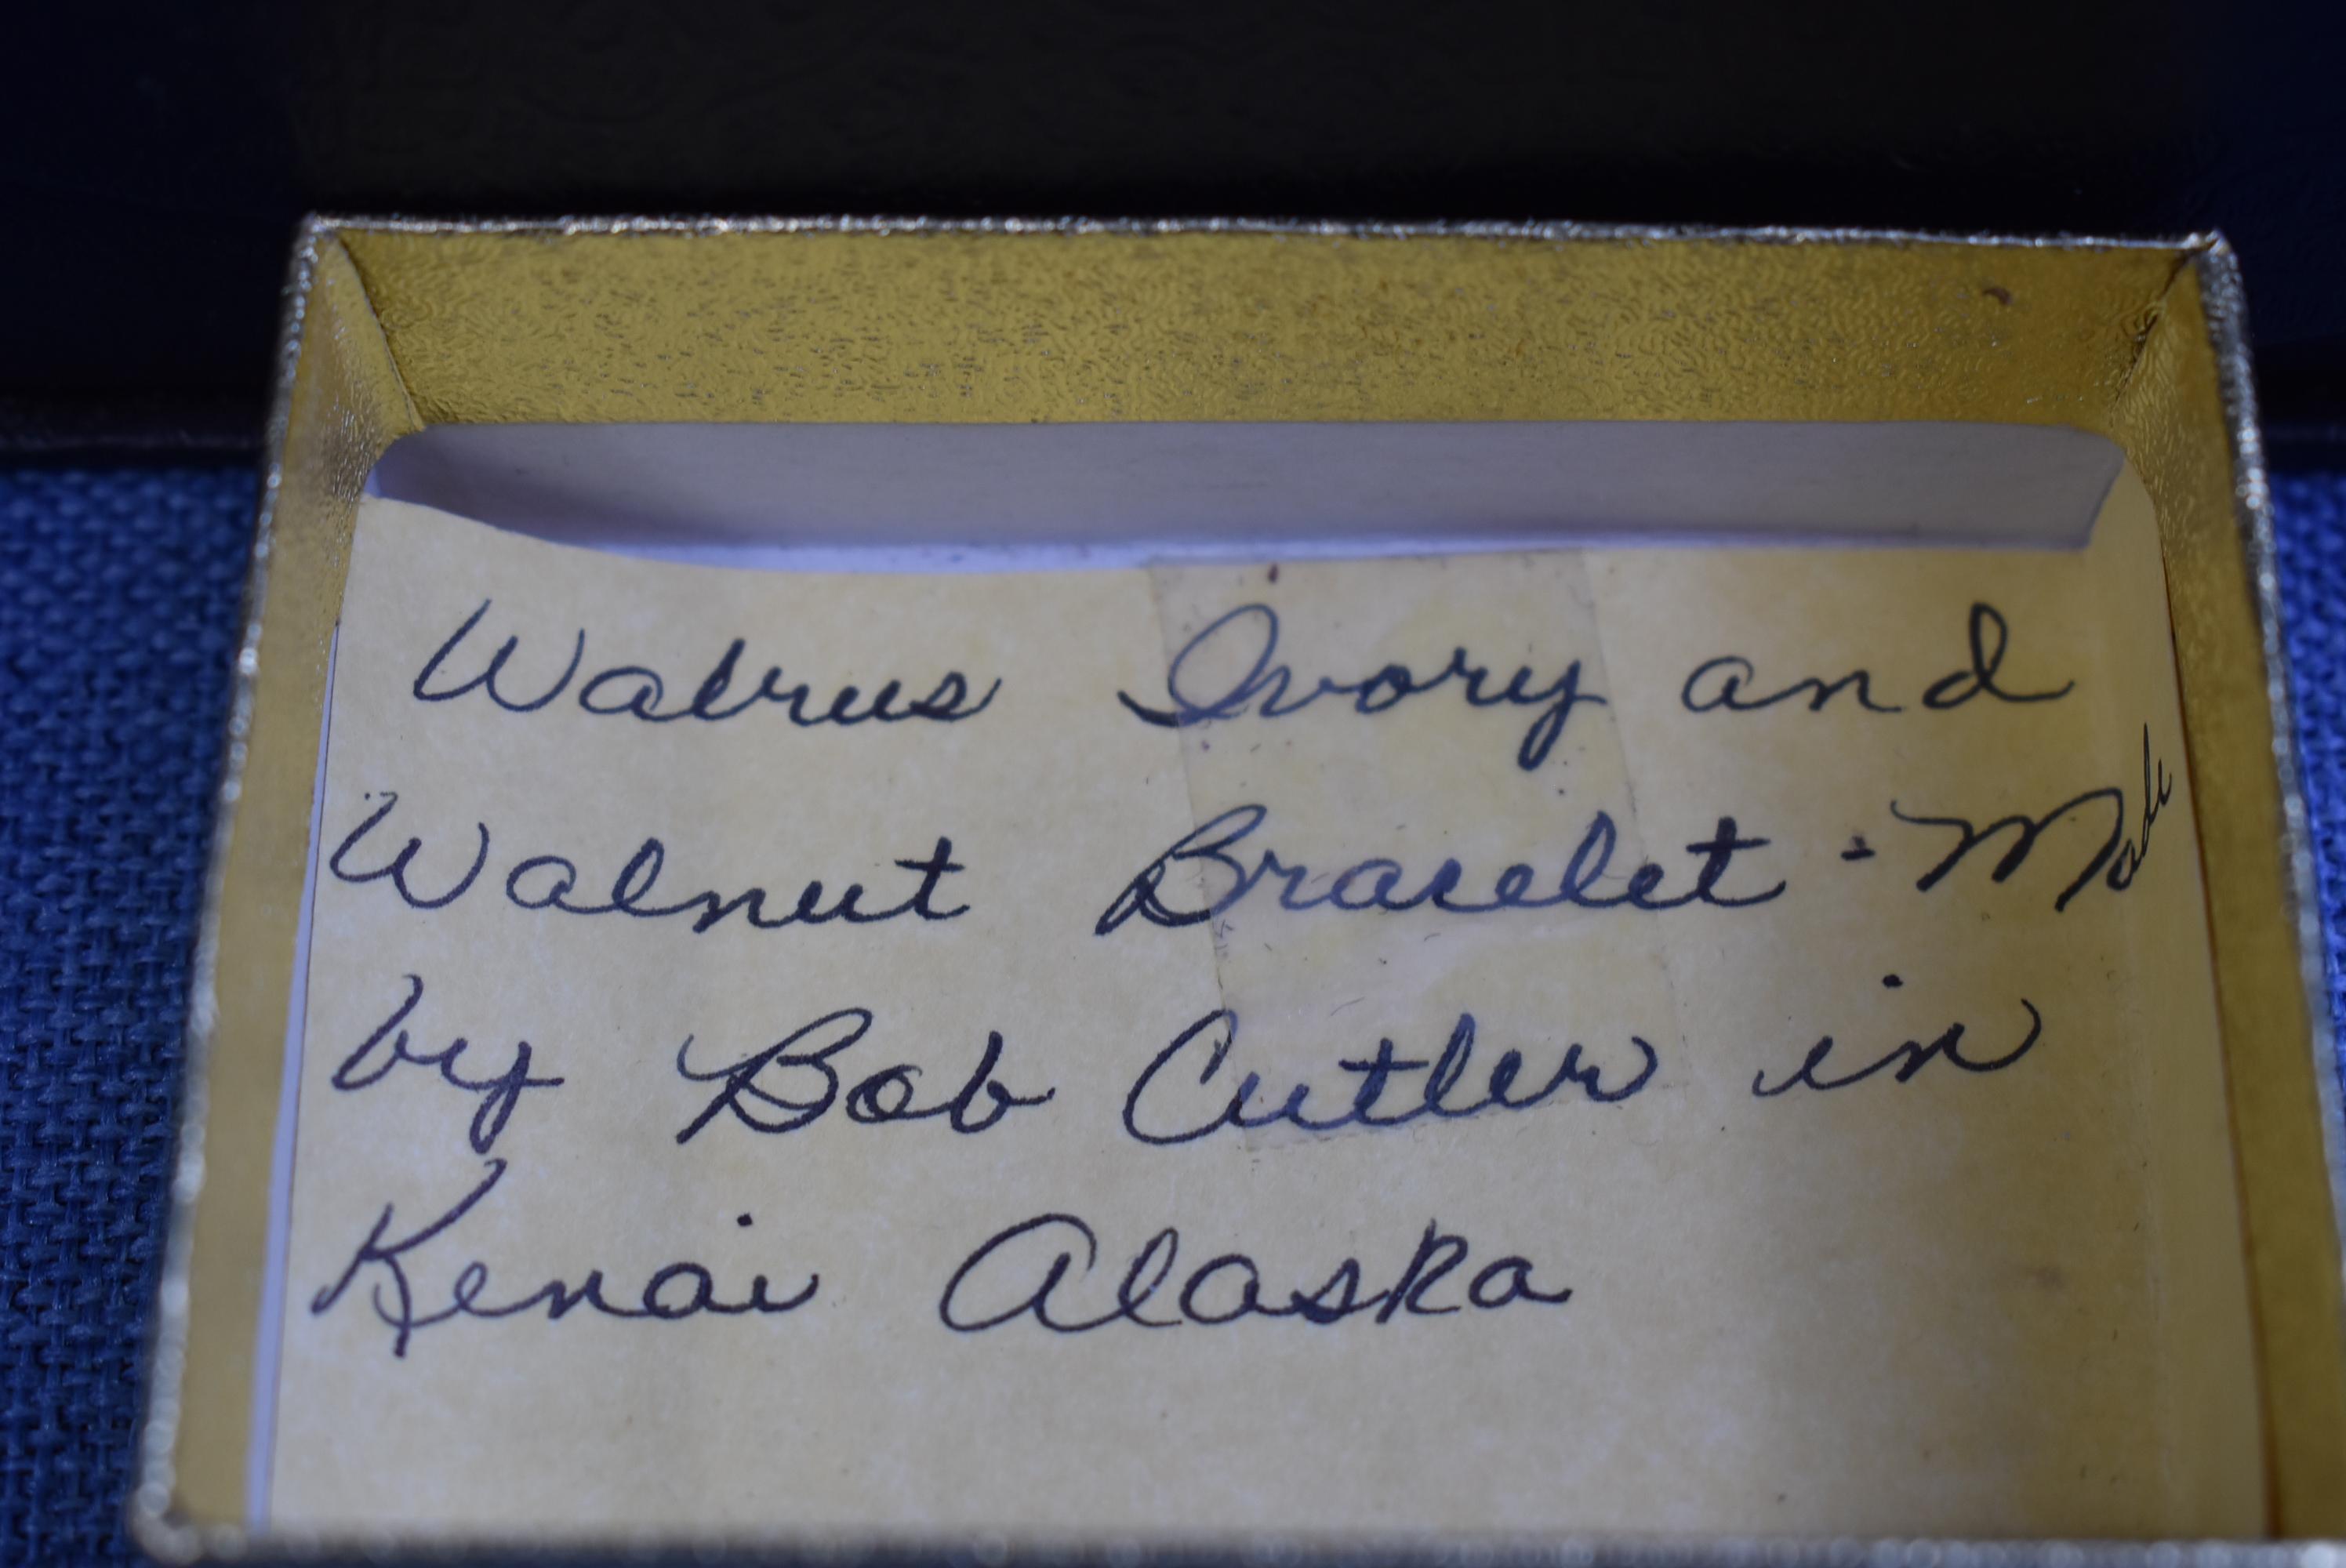 Walrus Ivory and
Walnut Bracelet - Made
by Bob Cutler in
Kenai Alaska